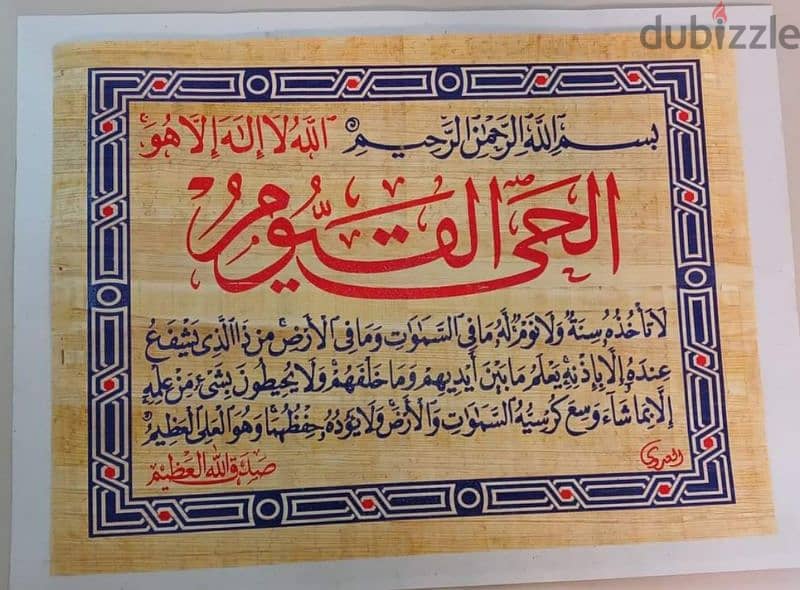 dubizzle
بسم الله الرحمن الرحيم الله لا إله إلا هو
الحي القيوم
لا تأخذه سنة ولا نوم له ما في السموات وما في الأرض من ذا الذي يشفع
عنده إلا بإذنه يعلم ما بين أيديهم وما خلفهم ولا يحيطون بشئ من علمه
إلا بما شاء وسع كرسيه السموات والأرض ولا يؤده حفظهما وهو العلي العظيم
صدق الله العظيم